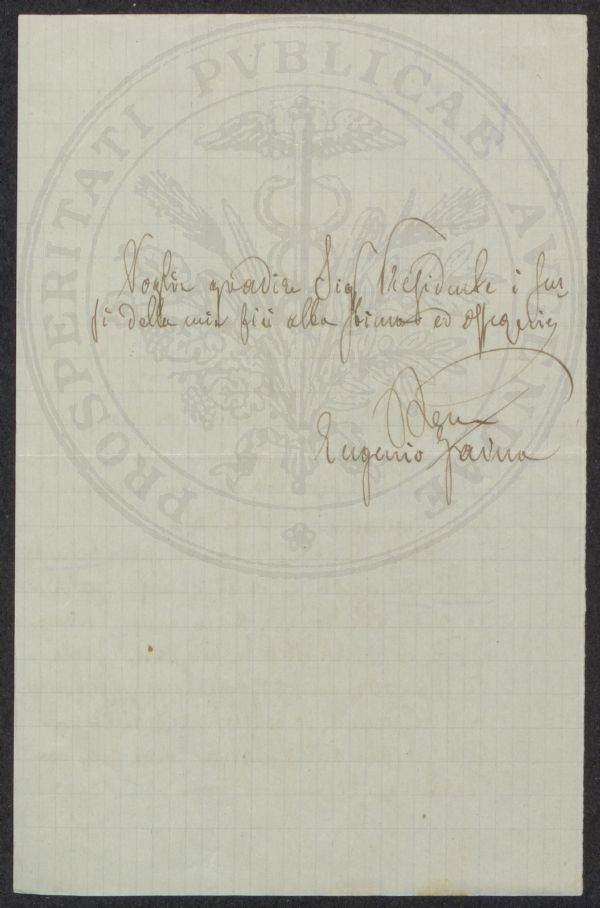 PROSPERITATI PVBLICAE AVGENDAE
Voglia gradire Sig Presidente i sen
si della mia più alta stima ed ossequio
Eugenio Faina